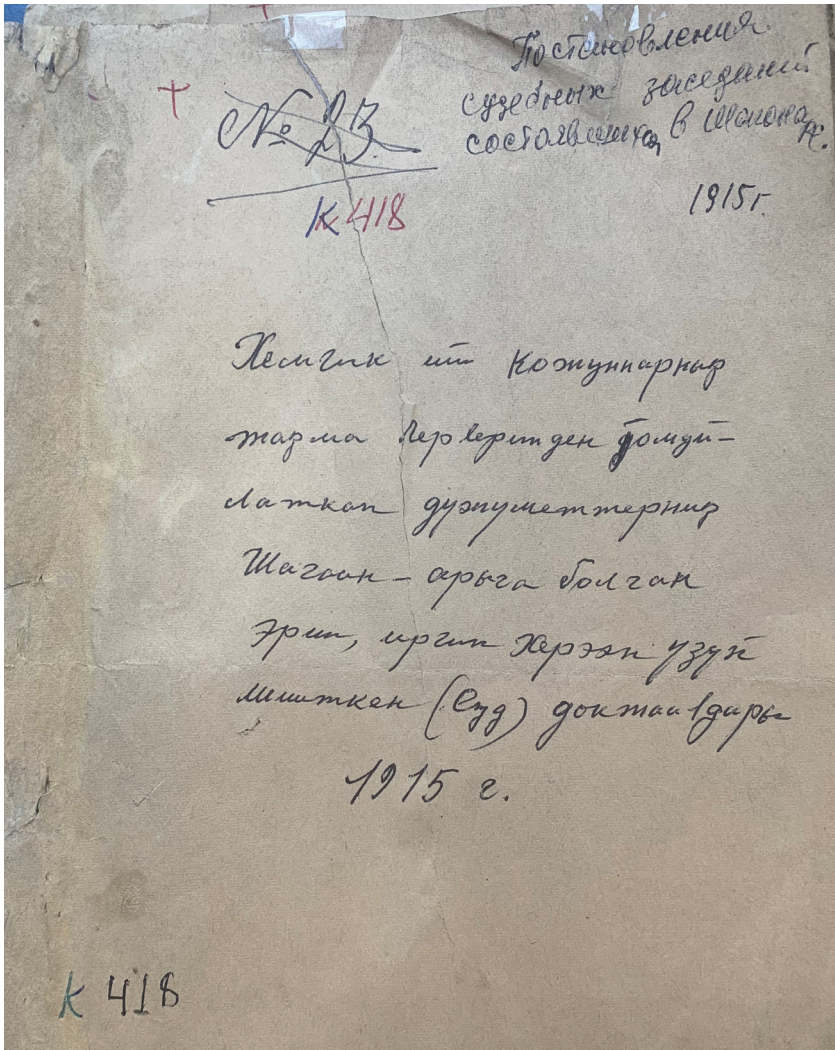 Постановления
судебных заседаний
состоявшихся в Шагонар.
№ 23.
1915г.
К 418
Хемчик ийи Кожуннарның
жазма Черлеринден домуй-
латкан дужуметтерниң
Шагаан-арыга болган
эрии, иргин Херээн узуй
миткен (Суд) доктаалдары
1915 г.
К 418